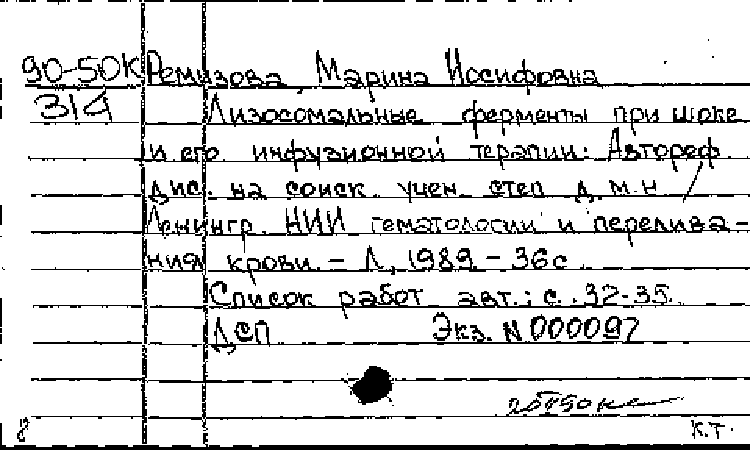 90-50К Ремизова Марина Иосифовна
314 Лизосомальные ферменты при шоке
и его инфузионной терапии: Автореф.
дис. на соиск. учен. степ д.м.н /
Ленингр. НИИ гематологии и перелива-
ния крови. - Л, 1989 - 36с
Список работ авт.: с. 32-35.
ДСП Экз. N 000097
8 К.Т.